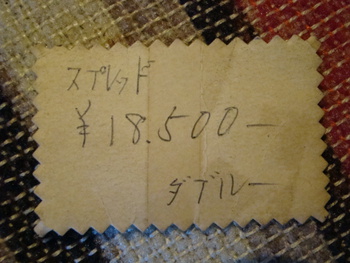 スプレッド
¥18.500—
ダブルー